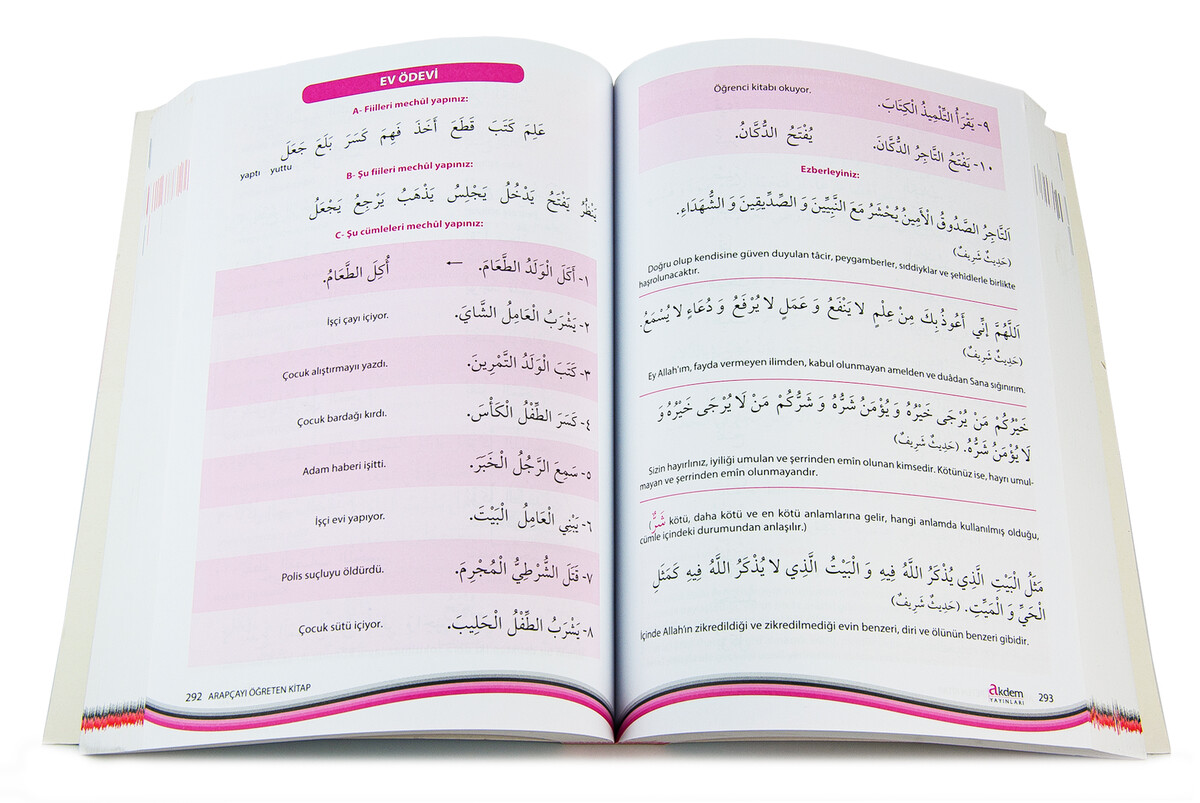 EV ÖDEVİ
A- Fiilleri mechûl yapınız:
عَلِمَ كَتَبَ قَطَعَ أَخَذَ فَهِمَ كَسَرَ بَلَعَ جَعَلَ
yaptı yuttu
B- Şu fiileri mechûl yapınız:
يَنْظُرُ يَفْتَحُ يَدْخُلُ يَجْلِسُ يَذْهَبُ يَرْجِعُ يَجْعَلُ
C- Şu cümleleri mechûl yapınız:
١- أَكَلَ الْوَلَدُ الطَّعَامَ. ← أُكِلَ الطَّعَامُ.
٢- يَشْرَبُ الْعَامِلُ الشَّايَ. İşçi çayı içiyor.
٣- كَتَبَ الْوَلَدُ التَّمْرِينَ. Çocuk alıştırmayıı yazdı.
٤- كَسَرَ الطِّفْلُ الْكَأْسَ. Çocuk bardağı kırdı.
٥- سَمِعَ الرَّجُلُ الْخَبَرَ. Adam haberi işitti.
٦- يَبْنِي الْعَامِلُ الْبَيْتَ. İşçi evi yapıyor.
٧- قَتَلَ الشُّرْطِيُّ الْمُجْرِمَ. Polis suçluyu öldürdü.
٨- يَشْرَبُ الطِّفْلُ الْحَلِيبَ. Çocuk sütü içiyor.
292 ARAPÇAYI ÖĞRETEN KİTAP
٩- يَقْرَأُ التِّلْمِيذُ الْكِتَابَ. Öğrenci kitabı okuyor.
١٠- يَفْتَحُ التَّاجِرُ الدُّكَّانَ. يُفْتَحُ الدُّكَّانُ.
Ezberleyiniz:
اَلتَّاجِرُ الصَّدُوقُ الْأَمِينُ يُحْشَرُ مَعَ النَّبِيِّينَ وَ الصِّدِّيقِينَ وَ الشُّهَدَاءِ.
(حَدِيثٌ شَرِيفٌ)
Doğru olup kendisine güven duyulan tâcir, peygamberler, sıddiyklar ve şehîdlerle birlikte
haşrolunacaktır.
اَللَّهُمَّ إِنِّي أَعُوذُ بِكَ مِنْ عِلْمٍ لَا يَنْفَعُ وَ عَمَلٍ لَا يُرْفَعُ وَ دُعَاءٍ لَا يُسْمَعُ.
(حَدِيثٌ شَرِيفٌ)
Ey Allah'ım, fayda vermeyen ilimden, kabul olunmayan amelden ve duâdan Sana sığınırım.
خَيْرُكُمْ مَنْ يُرْجَى خَيْرُهُ وَ يُؤْمَنُ شَرُّهُ وَ شَرُّكُمْ مَنْ لَا يُرْجَى خَيْرُهُ وَ
لَا يُؤْمَنُ شَرُّهُ. (حَدِيثٌ شَرِيفٌ)
Sizin hayırlınız, iyiliği umulan ve şerrinden emîn olunan kimsedir. Kötünüz ise, hayrı umul-
mayan ve şerrinden emîn olunmayandır.
(شَرٌّ kötü, daha kötü ve en kötü anlamlarına gelir, hangi anlamda kullanılmış olduğu,
cümle içindeki durumundan anlaşılır.)
مَثَلُ الْبَيْتِ الَّذِي يُذْكَرُ اللَّهُ فِيهِ وَ الْبَيْتُ الَّذِي لَا يُذْكَرُ اللَّهُ فِيهِ كَمَثَلِ
الْحَيِّ وَ الْمَيِّتِ. (حَدِيثٌ شَرِيفٌ)
İçinde Allah'ın zikredildiği ve zikredilmediği evin benzeri, diri ve ölünün benzeri gibidir.
akdem
YAYINLARI
293